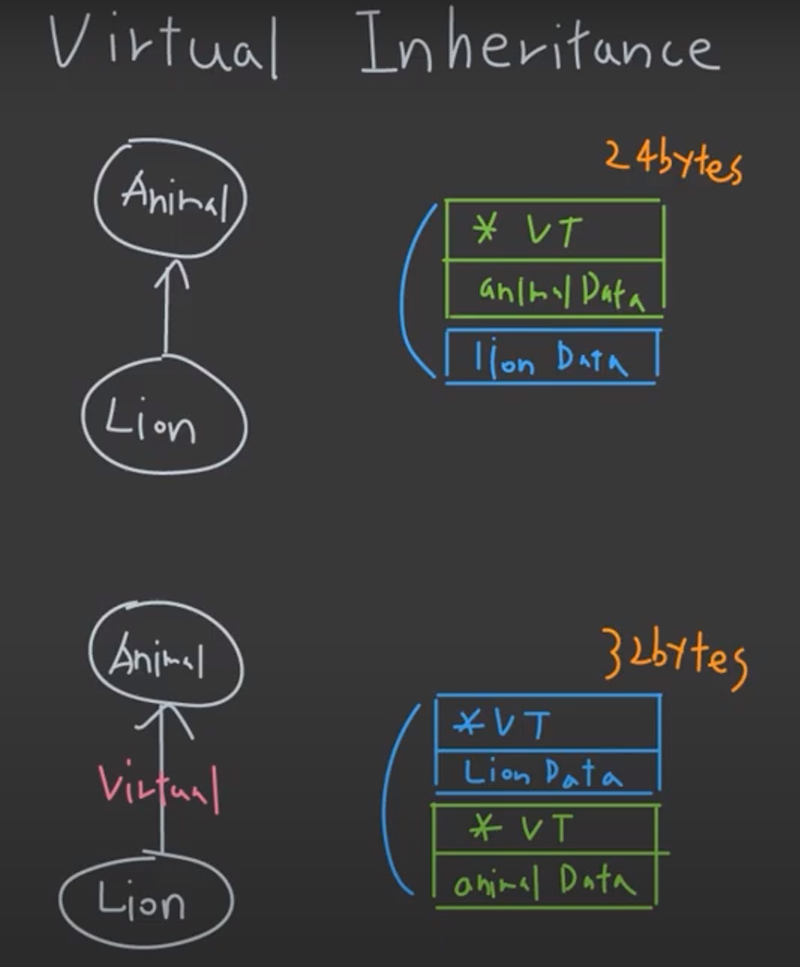 Virtual Inheritance
Animal
Lion
24bytes
* VT
animal Data
lion Data
Animal
Virtual
Lion
32bytes
*VT
Lion Data
* VT
animal Data